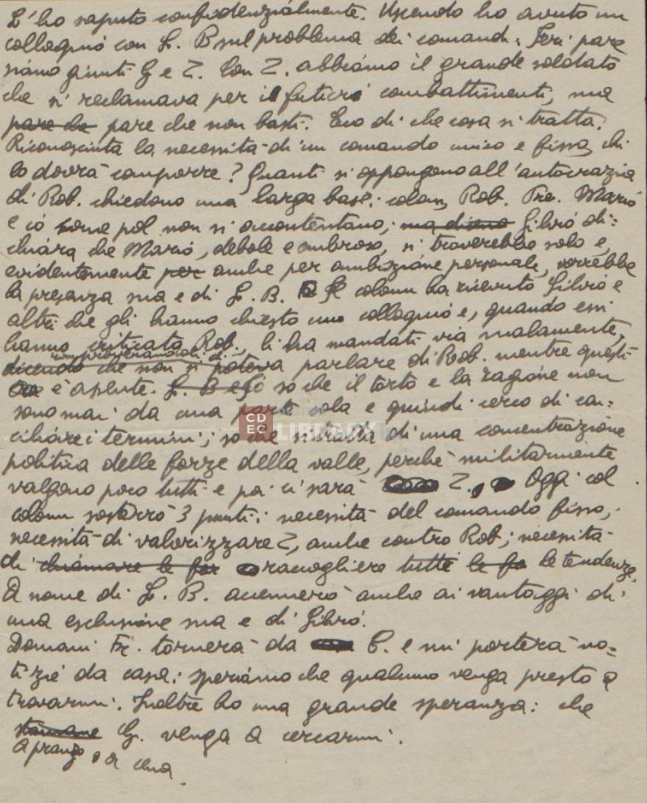 L'ho saputo confidenzialmente. Uscendo ho avuto un
colloquio con L. B sul problema dei comandi: Ieri pare
siano giunti G e Z. Con Z. abbiamo il grande soldato
che si reclamava per i futuri combattimenti, ma
pare che pare che non basti. Ecco di che cosa si tratta.
Riconosciuta la necessità di un comando unico e fisso, chi
lo dovrà comporre? Quanti si oppongono all'autocrazia
di Rob. chiedono una larga base: colonn, Rob. Pre. Mario
e ciò non si accontentano; ma diono Librò di=
chiara che Mario, debole e ombroso, si troverebbe solo e,
evidentemente per anche per ambizione personale, vorrebbe
la presenza sua e di L. B. Il colonn ha ricevuto Librò e
altri che gli hanno chiesto uno colloquio e, quando essi
hanno criticato Rob., li ha mandati via malamente,
rimproverandoli di
dicendo che non si poteva parlare di Rob. mentre questi
è assente. L. B e Io so che il torto e la ragione non
sono mai da una parte sola e quindi cerco di con=
ciliare i termini; so che si tratta di una concentrazione
politica delle forze della valle, perchè militarmente
valgono poco tutti e poi ci sarà Z. Oggi col
colonn sosterrò 3 punti: necessità del comando fisso,
necessità di valorizzare Z, anche contro Rob; necessità
di chiamare le for raccogliere tutte le fo le tendenze.
A nome di L. B. accennerò anche ai vantaggi di
una esclusione sua e di Librò.
Domani Fr. tornerà da C. e mi porterà no=
tizie da casa: speriamo che qualcuno venga presto a
trovarmi. Inoltre ho una grande speranza: che
G. venga a cercarmi.
a pranzo o a cena.
CDEC
LIBRARY